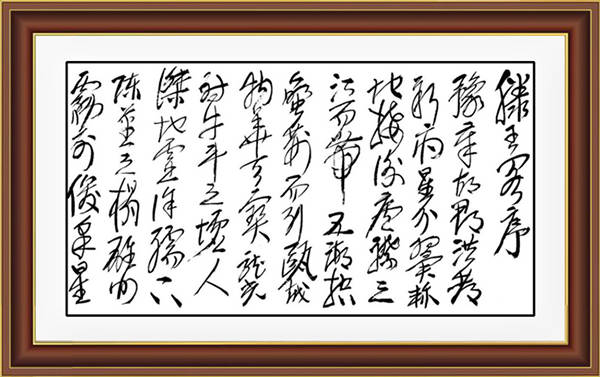 滕王阁序
豫章故郡洪都
新府星分翼轸
地接衡庐襟三
江而带五湖控
蛮荆而引瓯越
物華天寶龍光
射牛斗之墟人
傑地靈徐孺下
陈蕃之榻雄州
霧列俊采星